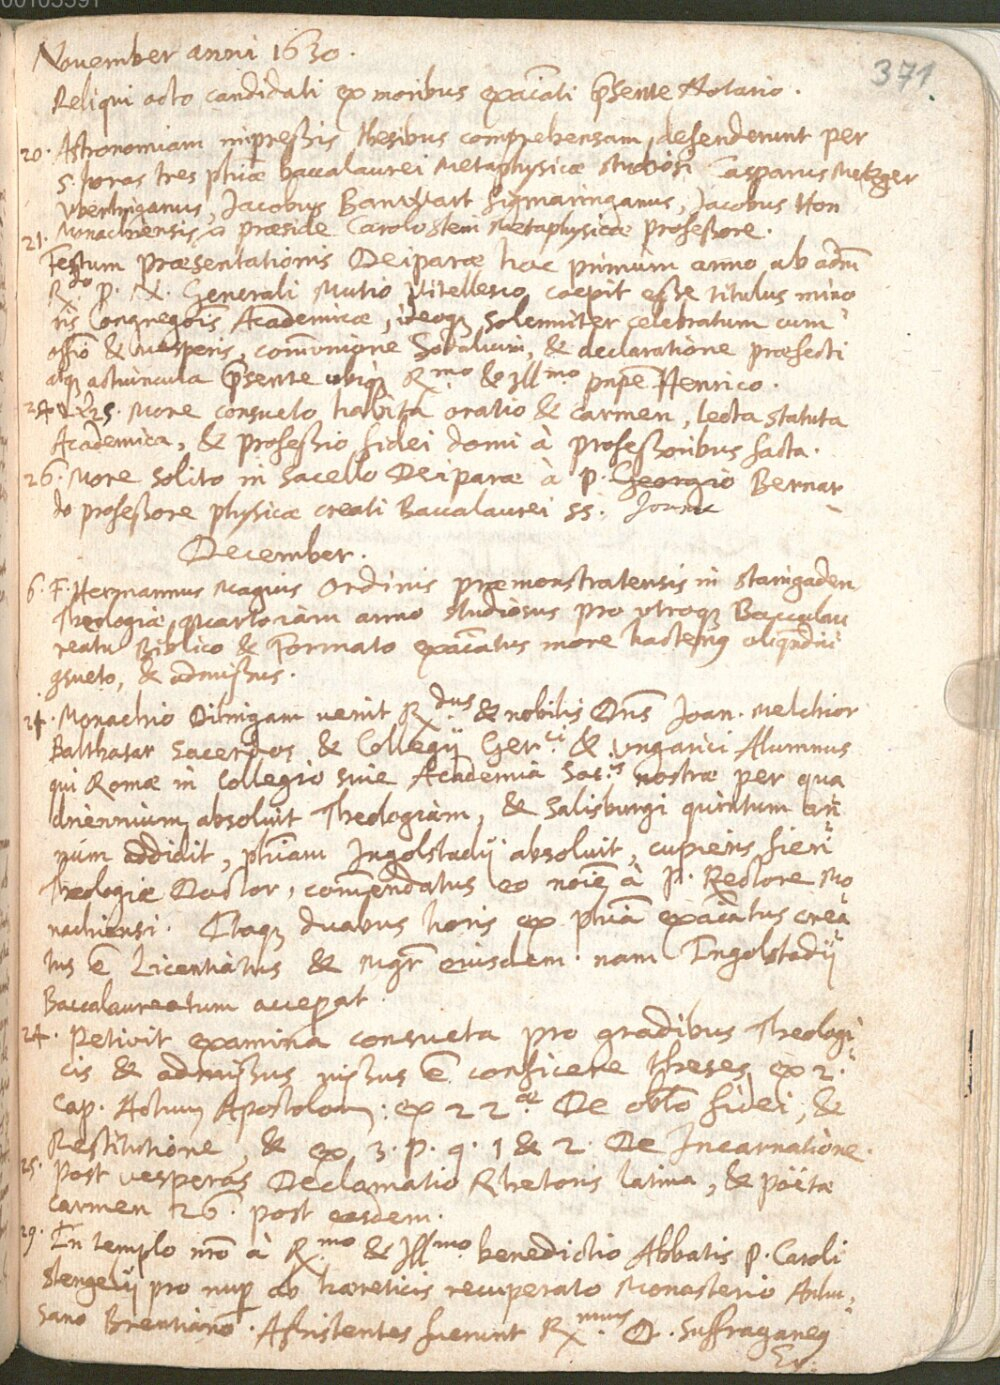 00103391
371
November anni 1630.
Reliqui octo candidati ex moribus exaıati p̃sente Notario.
20. Astronomiam impreßis thesibus comprehensam defenderunt per
5 horas tres phiæ baccalaurei Metaphysicæ studiosi Casparus Metzger
Vberlinganus, Jacobus Banwart Sigmaringanus, Jacobus Hon
Monachiensis præside Carolo Stein Metaphysicæ profeßore.
21. Festum Præsentationis Deiparæ hoc primùm anno ab adm̃
R.do P. N. Generali Mutio Vitellesco cæpit eße titulus mino
ris Congregõis Academicæ, ideoqꝫ solenniter celebratum cum
offiõ & vesperis, com̃unione Sodalium, & declaratione præfecti
atqꝫ actiuncula p̃sente ubiqꝫ R.mo & Ill.mo pñpe Henrico.
24 & 25. More consueto habita oratio & carmen, lecta statuta
Academica, & profeßio fidei domi à profeßoribus facta.
26. More solito in Sacello Deiparæ à P. Georgio Bernar
do profeßore physicæ creati Baccalaurei 55.
December.
6. F. Hermannus Magius Ordinis præmonstratensis in Staingaden
Theologiæ quarto iam anno studiosus pro vtroqꝫ Baccalau
reatu Biblico & Formato exaıatus more hactenꝰ aliqꝫdiu
ꝯsueto, & admißus.
21. Monachio Dilingam uenit R.dus & nobilis Dñs Joan. Melchior
Balthasar Sacerdos & Collegij Ger.ci & Vngarici Alumnus
qui Romæ in Collegio siue Academia Soc.tis nostræ per qua
driennium absoluit Theologiam, & Salisburgi quintum an
num addidit, phiam Ingolstadij absoluit, cupiens fieri
Theologiæ Doctor, com̃endatus eo noïe à P. Rectore Mo
nachiensi. Itaqꝫ duabus horis ex phiã exaıatus crea
tus ẽ Licentiatus & Mgr̃ eiusdem. nam Ingolstadij
Baccalaureatum acceperat.
24. Petivit examina consueta pro gradibus Theologi
cis & admißus iußus ẽ conficere theses ex 2.
cap. Actuum Apostolorum: ex 22æ De obto fidei, &
Restitutione, & ex 3. p. q. 1 & 2. De Incarnatione.
25. Post vesperas Declamatio Rhetoris latina, & poëtæ
carmen 26. post easdem.
29. In templo nr̃o à R.mo & Ill.mo benedictio Abbatis P. Caroli
Stengelij pro nuper ab hæreticis recuperato Monasterio Anhu
sano Brentiano. Aßistentes fuerunt R.mus D. Suffraganeꝰ